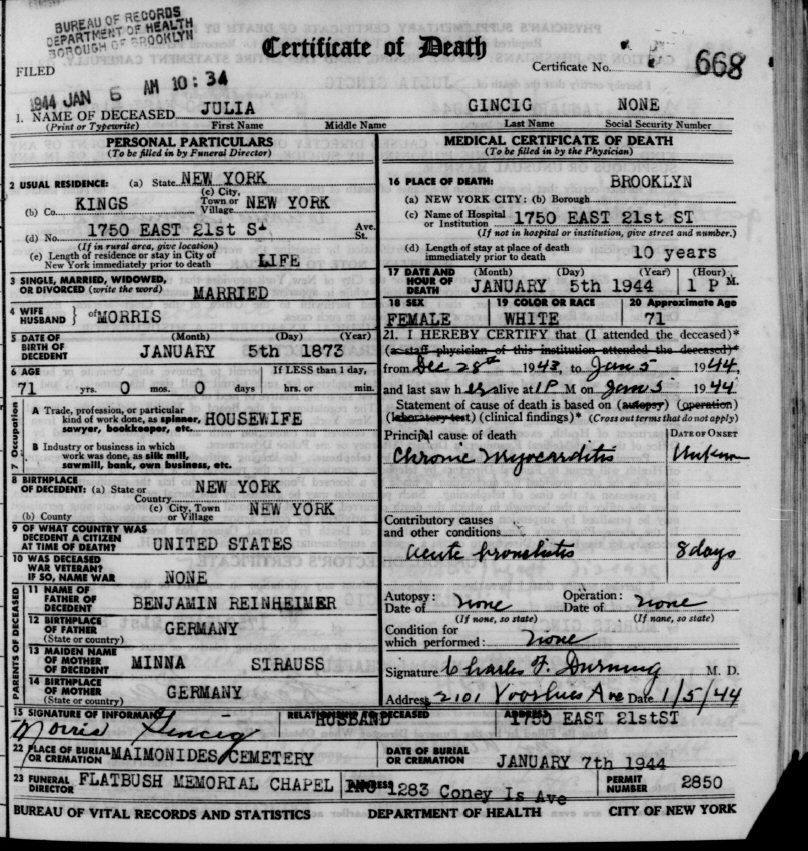 BUREAU OF RECORDS
DEPARTMENT OF HEALTH
BOROUGH OF BROOKLYN
Certificate of Death
FILED
Certificate No. 668
1944 JAN 6 AM 10:34
1. NAME OF DECEASED JULIA GINCIG NONE
(Print or Typewrite) First Name Middle Name Last Name Social Security Number
PERSONAL PARTICULARS
(To be filled in by Funeral Director)
2 USUAL RESIDENCE: (a) State NEW YORK
(b) Co. KINGS (c) City, Town or Village NEW YORK
(d) No. 1750 EAST 21st St Ave. St.
(If in rural area, give location)
(e) Length of residence or stay in City of New York immediately prior to death LIFE
3 SINGLE, MARRIED, WIDOWED, OR DIVORCED (write the word) MARRIED
4 WIFE HUSBAND } of MORRIS
5 DATE OF BIRTH OF DECEDENT (Month) (Day) (Year)
JANUARY 5th 1873
6 AGE If LESS than 1 day,
71 yrs. 0 mos. 0 days hrs. or min.
7 Occupation
A Trade, profession, or particular kind of work done, as spinner, sawyer, bookkeeper, etc. HOUSEWIFE
B Industry or business in which work was done, as silk mill, sawmill, bank, own business, etc.
8 BIRTHPLACE OF DECEDENT: (a) State or Country NEW YORK
(b) County (c) City, Town or Village NEW YORK
9 OF WHAT COUNTRY WAS DECEDENT A CITIZEN AT TIME OF DEATH? UNITED STATES
10 WAS DECEASED WAR VETERAN? IF SO, NAME WAR NONE
PARENTS OF DECEASED
11 NAME OF FATHER OF DECEDENT BENJAMIN REINHEIMER
12 BIRTHPLACE OF FATHER (State or country) GERMANY
13 MAIDEN NAME OF MOTHER OF DECEDENT MINNA STRAUSS
14 BIRTHPLACE OF MOTHER (State or country) GERMANY
MEDICAL CERTIFICATE OF DEATH
(To be filled in by the Physician)
16 PLACE OF DEATH:
(a) NEW YORK CITY: (b) Borough BROOKLYN
(c) Name of Hospital or Institution 1750 EAST 21st ST
(If not in hospital or institution, give street and number.)
(d) Length of stay at place of death immediately prior to death 10 years
17 DATE AND HOUR OF DEATH (Month) (Day) (Year) (Hour)
JANUARY 5th 1944 1 P M.
18 SEX 19 COLOR OR RACE 20 Approximate Age
FEMALE WHITE 71
21. I HEREBY CERTIFY that (I attended the deceased)*
(a staff physician of this institution attended the deceased)*
from Dec 28th 1943, to Jan 5 1944,
and last saw her alive at 1 P M on Jan 5 1944
Statement of cause of death is based on (autopsy) (operation)
(laboratory test) (clinical findings)* (Cross out terms that do not apply)
Principal cause of death DATE OF ONSET
Chronic Myocarditis
Contributory causes and other conditions
acute bronchitis 8 days
Autopsy: Date of none Operation: Date of none
(If none, so state) (If none, so state)
Condition for which performed: none
Signature Charles F. Durning M. D.
Address 2101 Voorhies Ave Date 1/5/44
15 SIGNATURE OF INFORMANT RELATIONSHIP TO DECEASED ADDRESS
Morris Gincig HUSBAND 1750 EAST 21st ST
22 PLACE OF BURIAL OR CREMATION MAIMONIDES CEMETERY DATE OF BURIAL OR CREMATION JANUARY 7th 1944
23 FUNERAL DIRECTOR FLATBUSH MEMORIAL CHAPEL INC ADDRESS 1283 Coney Is Ave PERMIT NUMBER 2850
BUREAU OF VITAL RECORDS AND STATISTICS DEPARTMENT OF HEALTH CITY OF NEW YORK